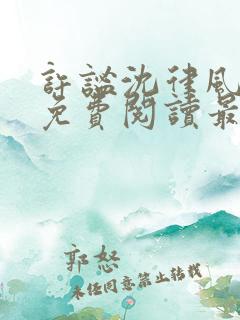 許謐沈律風
免費閱讀最
郭怒
未经同意禁止转载